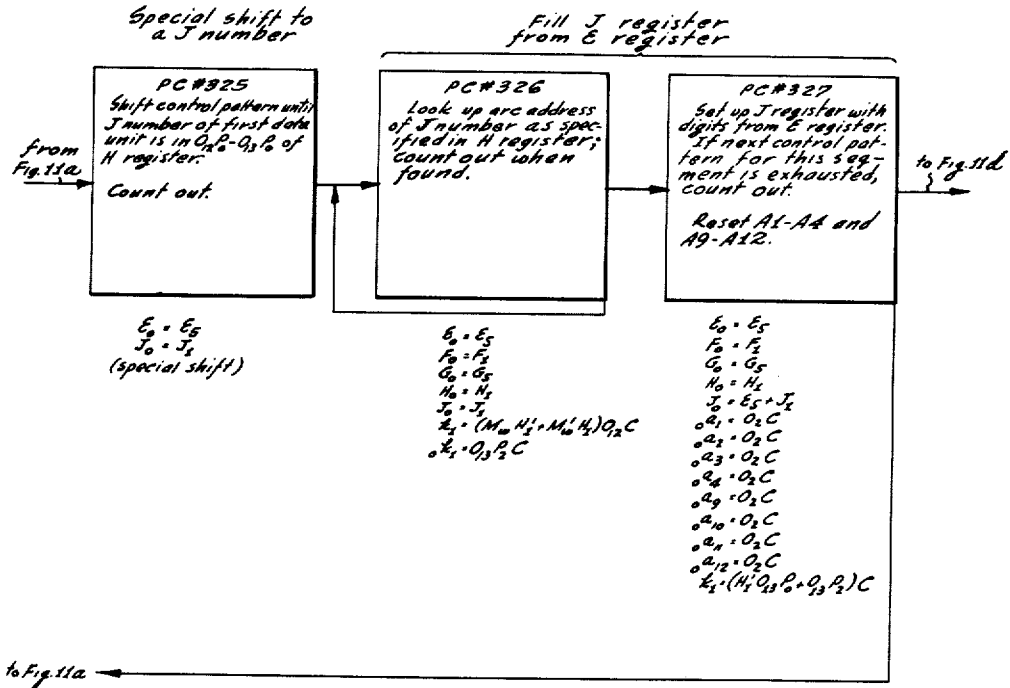 Special shift to
a J number
Fill J register
from E register
PC#325
Shift control pattern until
J number of first data
unit is in O₁₂P₀-O₁₃P₀ of
H register.
Count out.
from
Fig.11a
PC#326
Look up arc address
of J number as spec-
ified in H register;
count out when
found.
PC#327
Set up J register with
digits from E register.
If next control pat-
tern for this seg-
ment is exhausted,
count out.
Reset A1-A4 and
A9-A12.
to Fig.11d
E₀ = E₅
J₀ = J₁
(special shift)
E₀ = E₅
F₀ = F₁
G₀ = G₅
H₀ = H₁
J₀ = J₁
k₁ = (M_w H₁' + M_w' H₁)O₁₂C
₀k₁ = O₁₃P₂C
E₀ = E₅
F₀ = F₁
G₀ = G₅
H₀ = H₁
J₀ = E₅ + J₁
₀a₁ = O₂C
₀a₂ = O₂C
₀a₃ = O₂C
₀a₄ = O₂C
₀a₉ = O₂C
₀a₁₀ = O₂C
₀a₁₁ = O₂C
₀a₁₂ = O₂C
k₁ = (H₁'O₁₃P₀ + O₁₃P₂)C
to Fig.11a